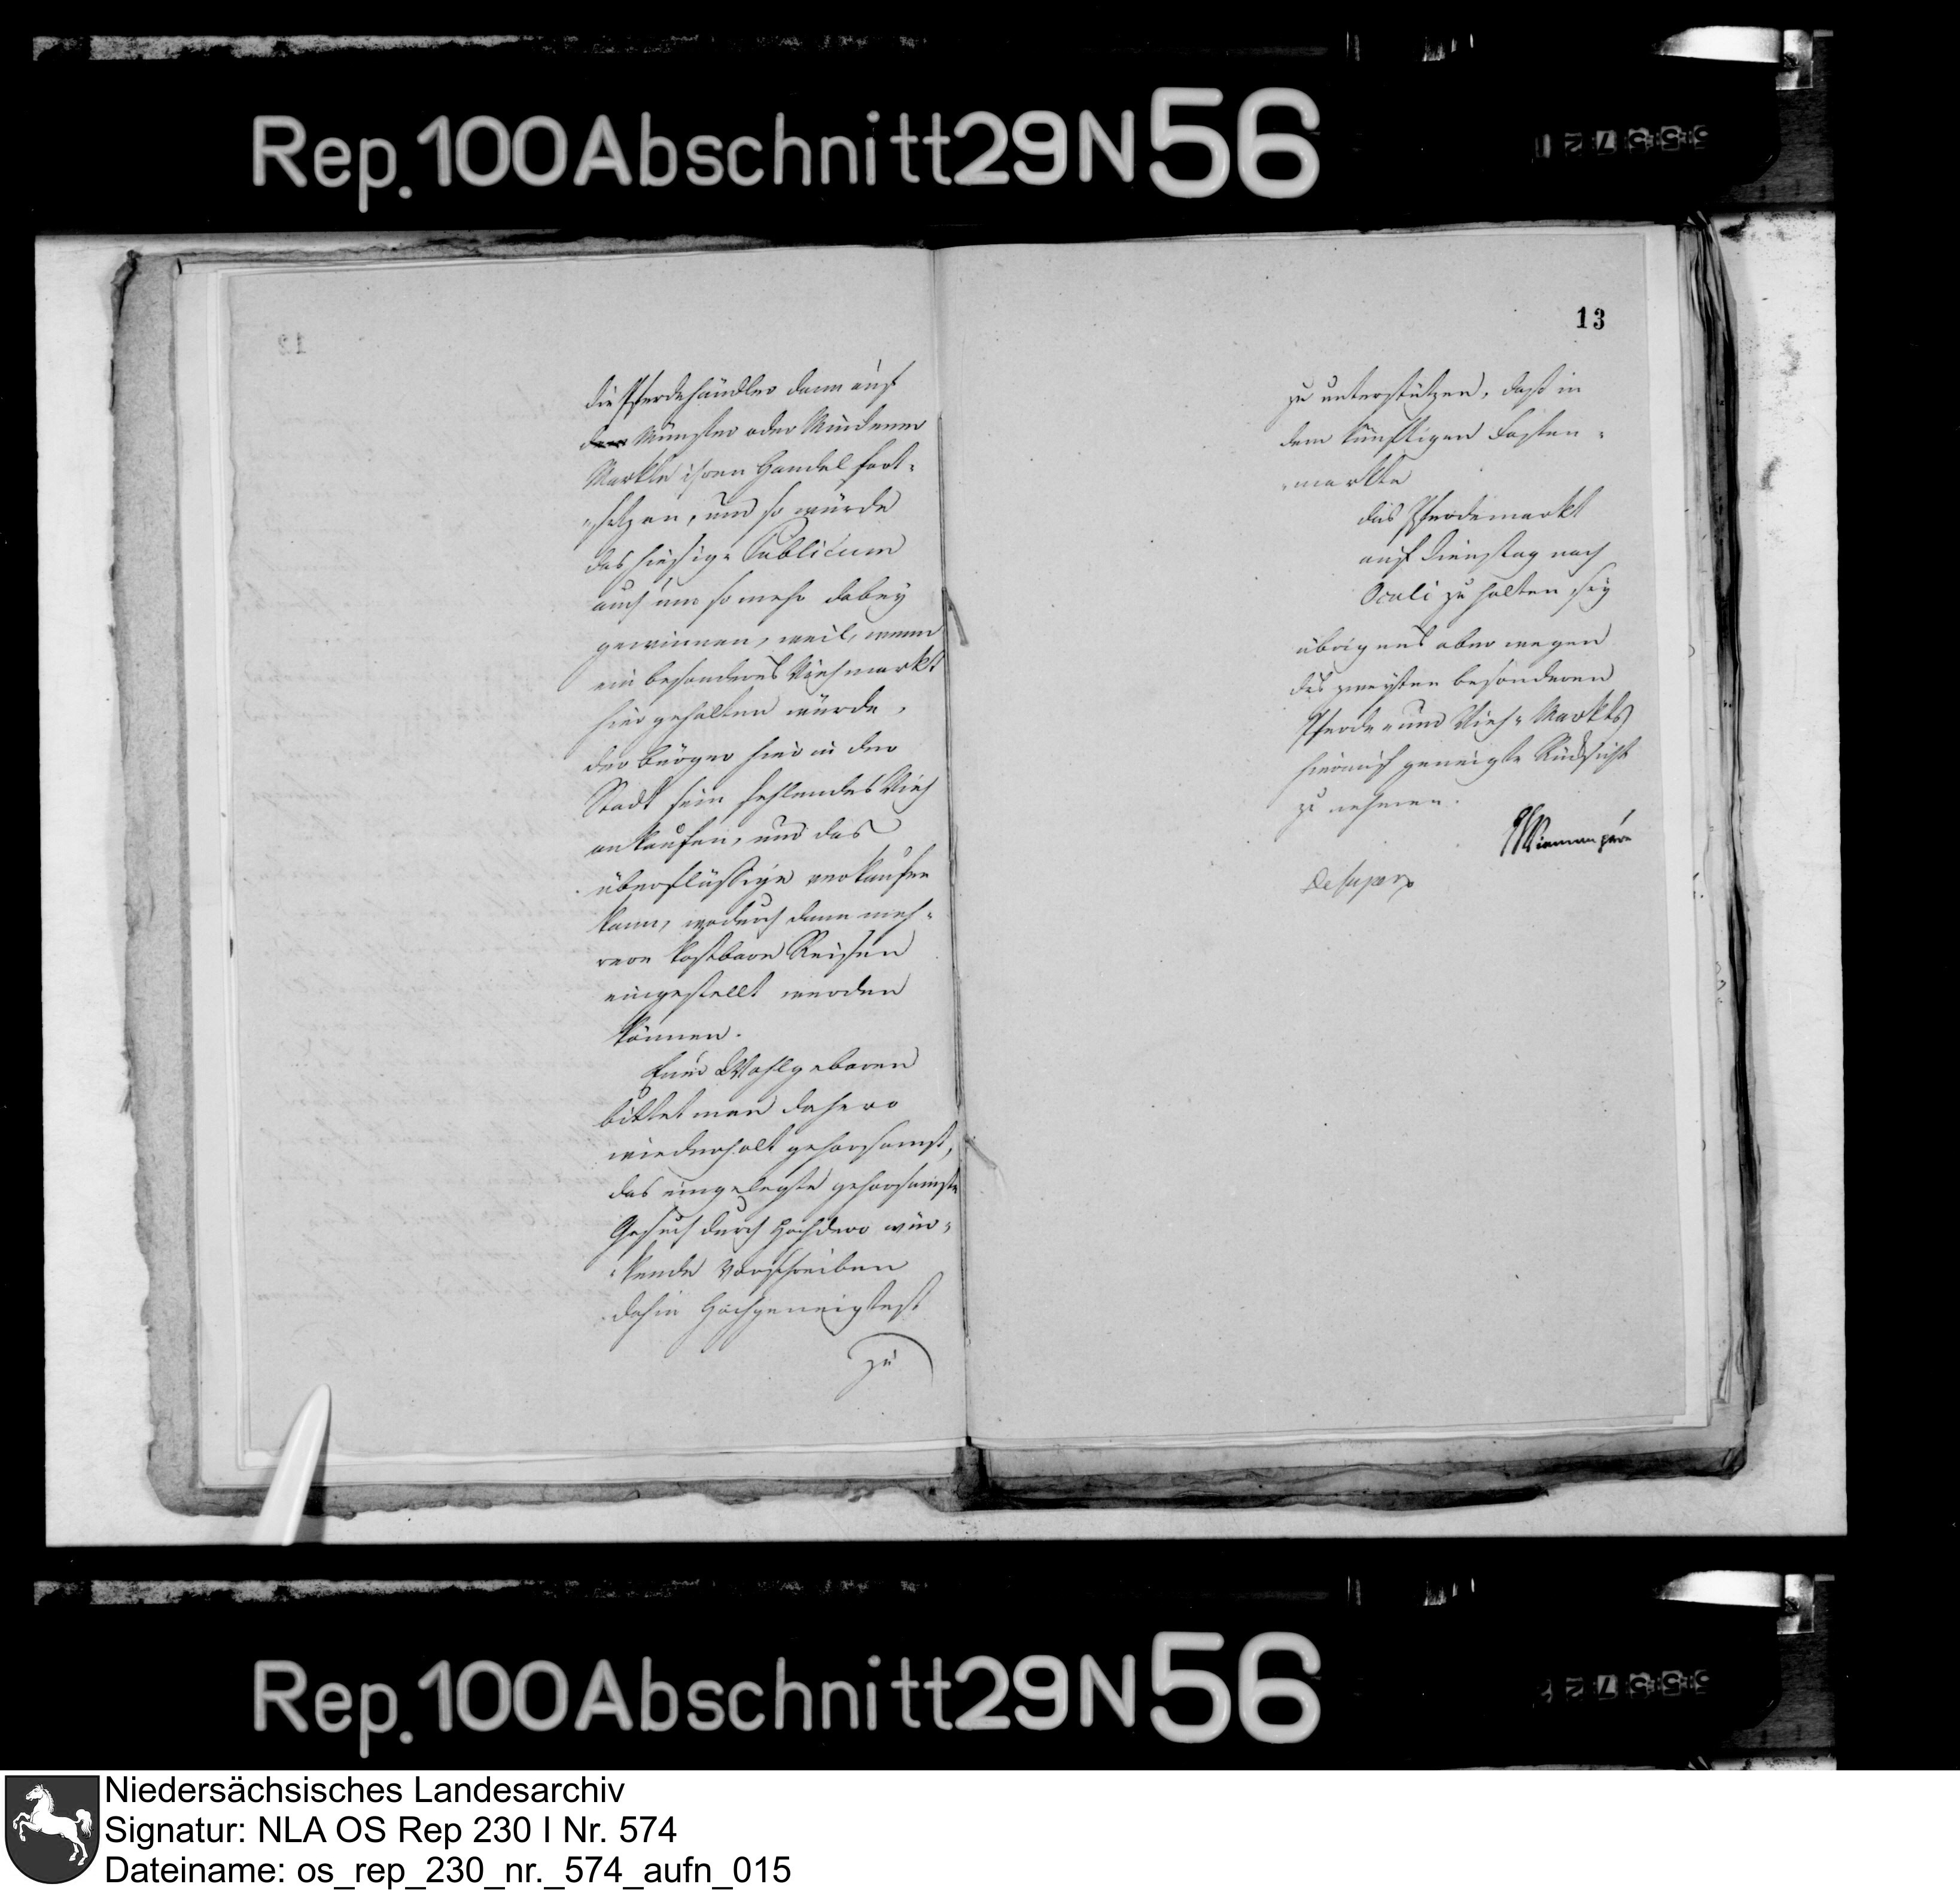 Rep. 100 Abschnitt 29 N 56
die Pferdehändler dann auf
Münster oder Mindener
Markte ihren Handel fort-
-setzen, und so würde
das hiesige Publicum
auch um so mehr dabey
gewinnen, weil, wenn
ein besonderes Viehmarkt
hier gehalten würde,
der bürger hier in der
Stadt sein fehlendes Vieh
ankaufen, und das
überflüssige verkaufen
kann, wodurch dann meh-
rere kostbare Reisen
eingestellt werden
können.
Euer Wohlgebaren
bittet man dahero
wiederhohlt gehorsamst,
das eingelegte gehorsamste
Gesuch durch Hochdero wür-
-kende Vorschreiben
dahin Hochgeneigtest
zu
13
zu unterstützen, daß in
dem künftigen Fasten-
-markte
das Pferdemarkt
auf Dienstag nach
Oculi zu halten sey
übrigens aber wegen
des zweyten besonderen
Pferde- und Vieh-Markts
hierauf geneigte Rücksicht
zu nehmen.
Desuper
Rep. 100 Abschnitt 29 N 56
Niedersächsisches Landesarchiv
Signatur: NLA OS Rep 230 I Nr. 574
Dateiname: os_rep_230_nr._574_aufn_015